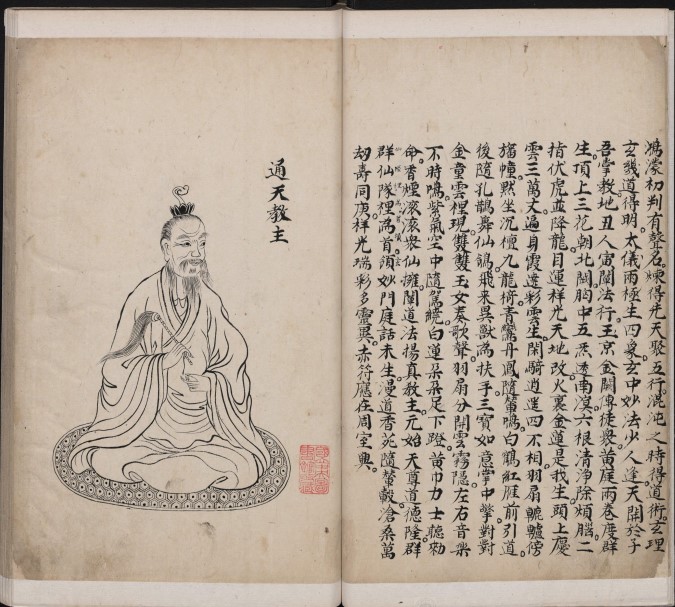 鴻濛初判有聲名。煉得先天聚五行。混沌之時得道術。玄理
玄幾道得明。太儀兩極生四象。玄中妙法少人逢。天開於子
吾掌教地丑人寅闡法行。玉京金闕傳徒衆。黃庭兩卷度群
生。頂上三花朝北闕。胸中五炁透南溟。六根清淨除煩腦。二
指伏虎並降龍。目運祥光天地改。火裏金蓮是我生。頭上慶
雲三萬丈。遍身霞遶彩雲生。閑騎逍遙四不相。羽扇轆轤傍
旛幢。默坐沉檀九龍椅。青鸞丹鳳隨輦鳴。白鶴紅雁前引道
後隨孔鵲舞仙鶴。飛來異獸為扶手。三寶如意掌中擎。對對
金童雲裡現。雙雙玉女奏歌聲。羽扇分開雲霧隱。左右音樂
不時鳴。紫氣空中隨駕繞。白蓮朵朵足下蹬。黃巾力士聽勅
命。香煙滾滾衆仙擁。闡道法揚真教主。元始天尊道德隆。群
群仙隊裡為首領。妙門庭話未生。漫道香花隨輦轂。滄桑萬
劫壽同庚。祥光瑞彩多靈異。赤符應在周室興。
通天教主